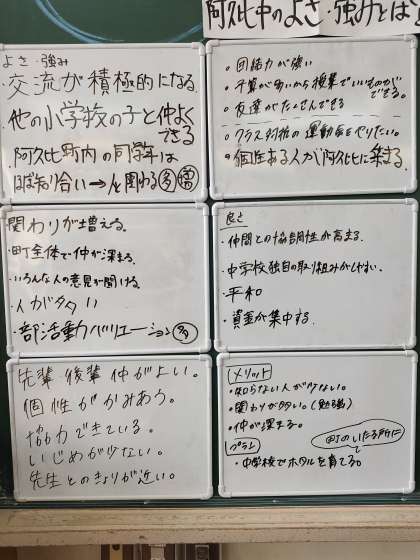 阿久比中のよさ・強みとは
よさ・強み
・交流が積極的になる。
・他の小学校の子と仲よく
できる
・阿久比町内の同学年は
ほぼ知り合い→人と関わる多増
・団結力が強い
・千葉が多いから授業でいいものが
できる。
・友達がたくさんできる
・クラス対抗の運動会をやりたい。
・個性ある人が阿久比に集まる
関わりが増える。
・町全体で仲が深まる。
・いろんな人の意見が聞ける。
・人がタタい
部活動バリエーション多
良さ
・仲間との協調性が高まる。
・中学校独自の取り組みがしやすい。
・平和
・資金が集中する。
先輩後輩仲がよい。
個性がかみあう。
協力できている。
いじめが少ない。
先生とのきょりが近い。
メリット
・知らない人が少ない。
・関わりが多い。(勉強)
・仲が深まる。
プラン
町のいたる所に
・中学校でホタルを育てる。